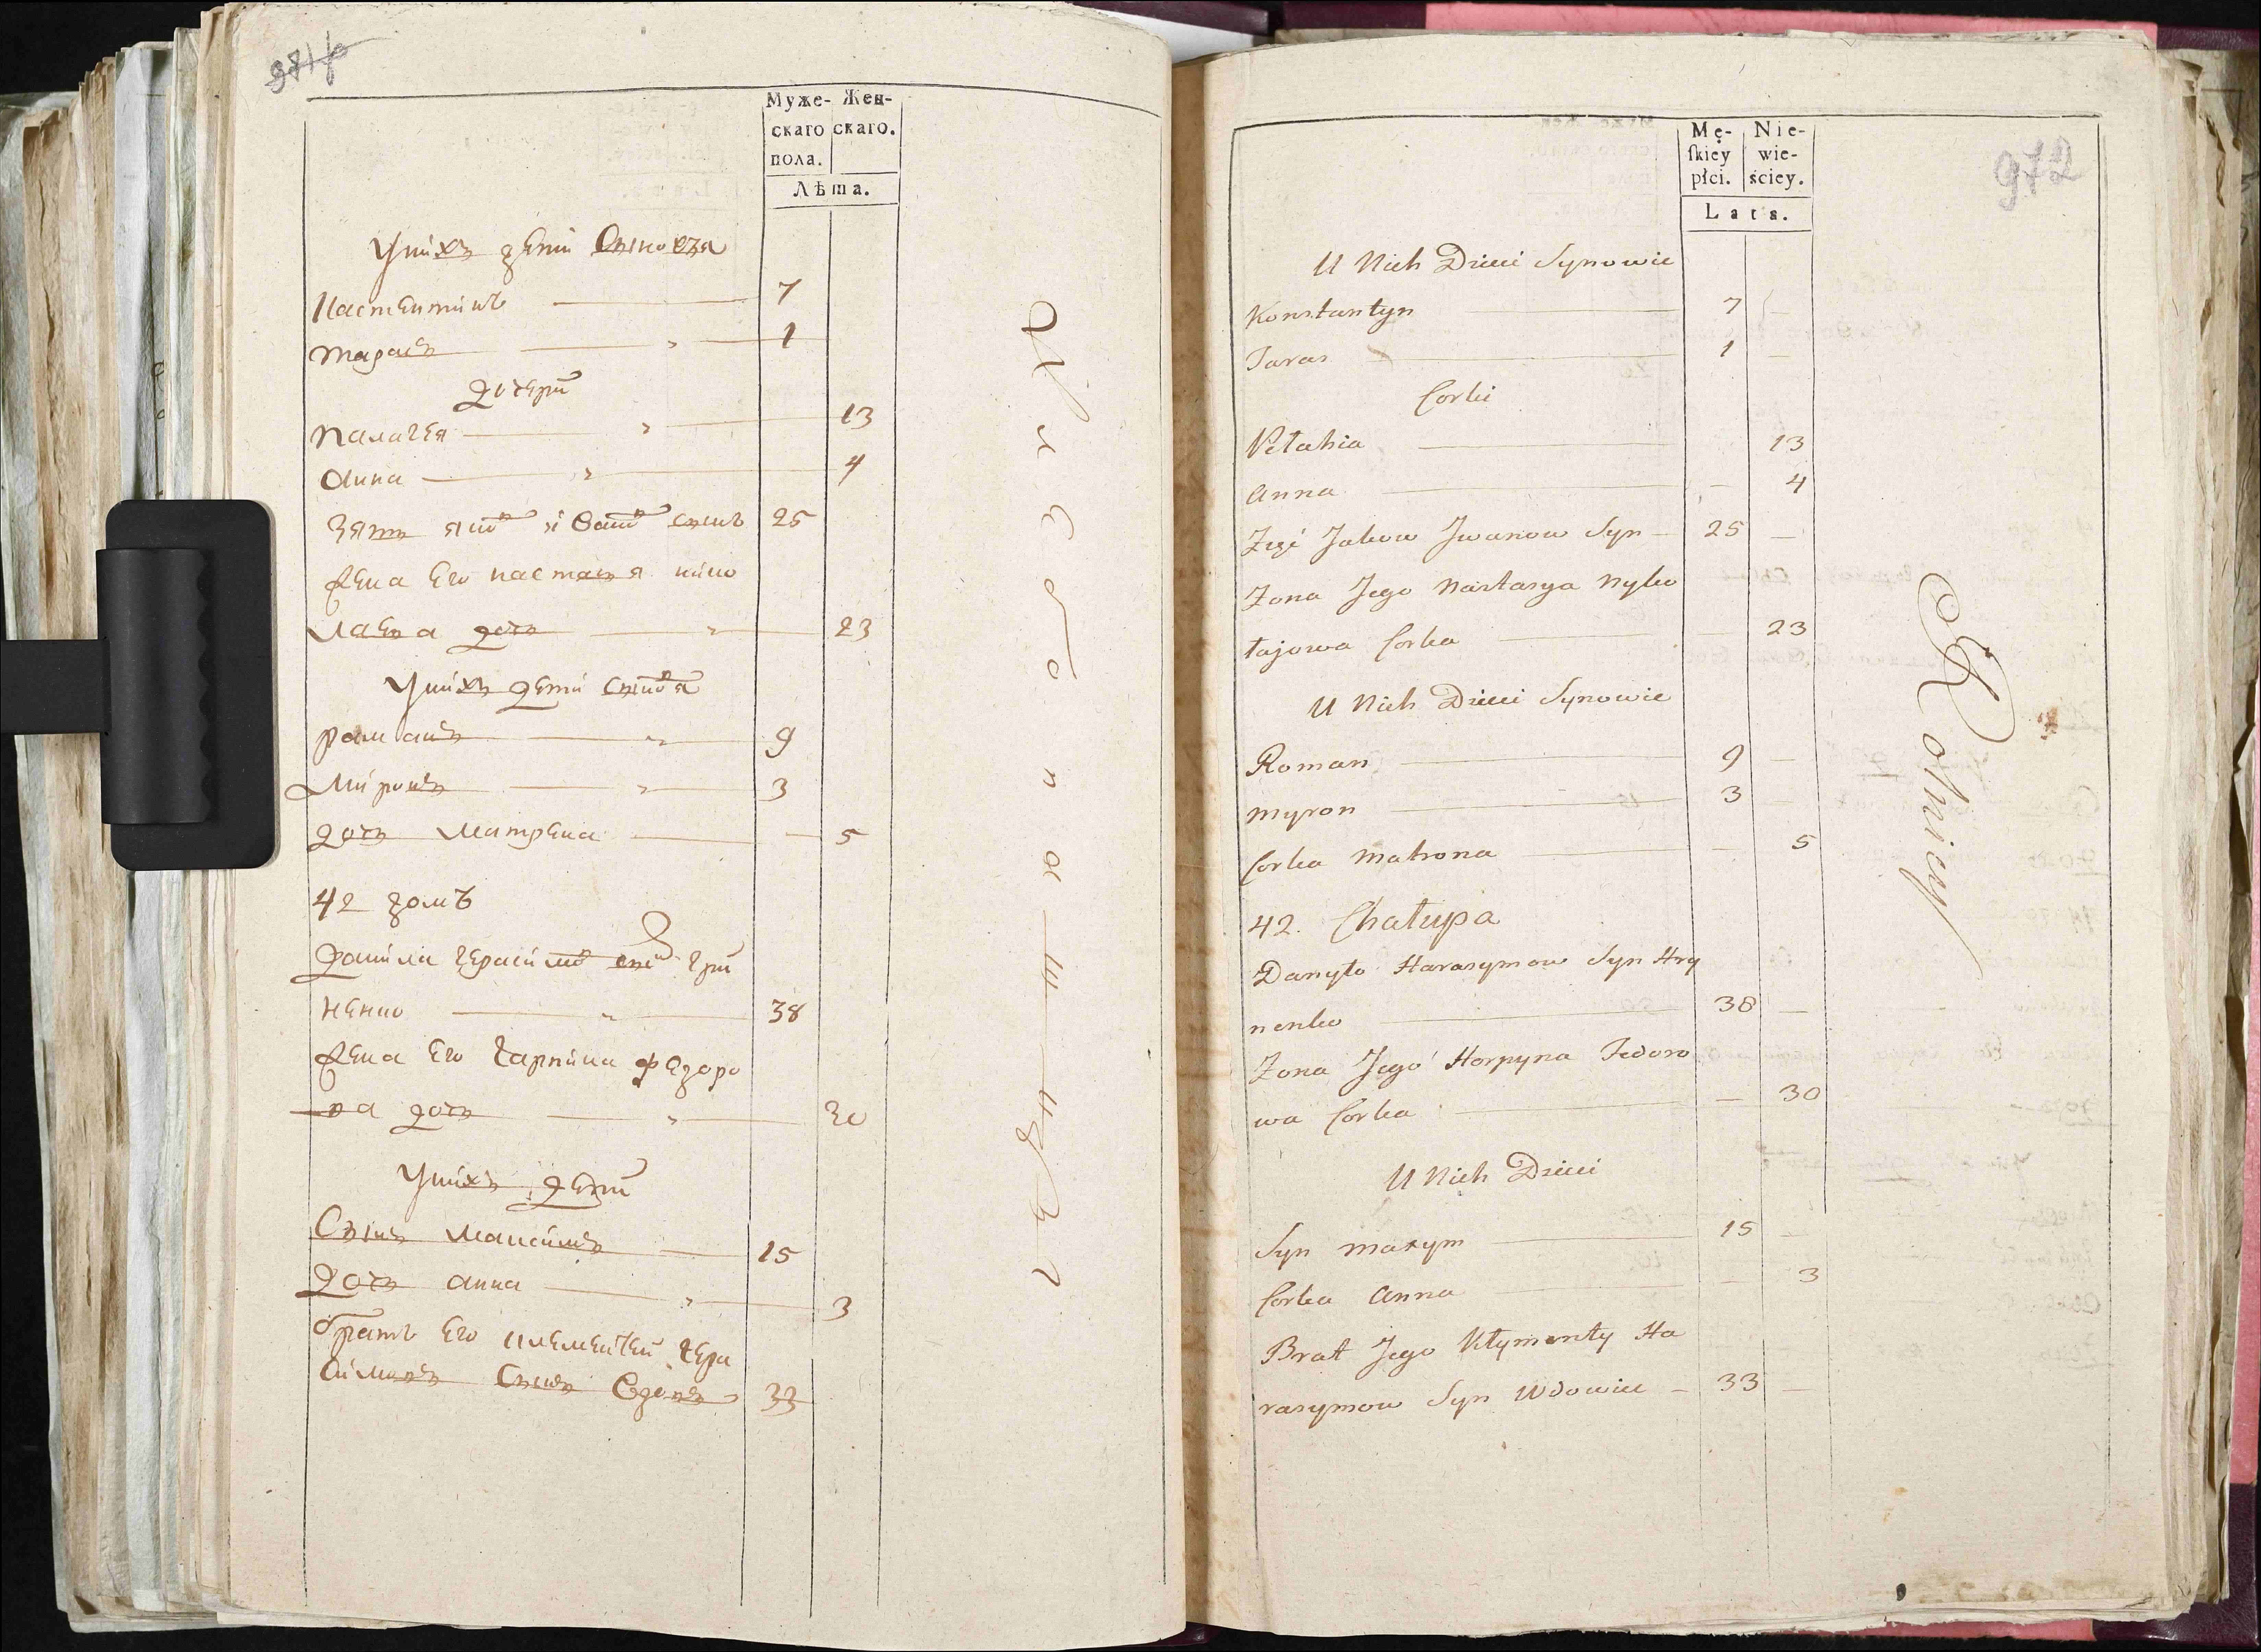 971 б
Муже- Жен-
скаго скаго.
пола.
Лѣта.
У нихъ дети Сыновья
Кастентинъ 7
Тарасъ 1
дочери
Палагея 13
Анна 4
Зять яковъ ивановъ сынъ 25
Жена Его настасья нико
лаева дочь 23
У нихъ дети сыновья
романъ 9
миронъ 3
дочь матрена 5
42 домъ
данила герасимовъ сынъ гри
ненко 38
Жена Его гарпина федоро
ва дочь 30
У нихъ дети
Сынъ максимъ 15
дочь анна 3
братъ Его клементей гера
симовъ Сынъ вдовъ 33
Хлебопашцы
972
Mę- Nie-
ſkiey wie-
płci. ściey.
Lata.
U Nich Dzieci Synowie
Konstantyn 7
Taras 1
Corki
Pełahia 13
Anna 4
Zięć Jakow Jwanow Syn 25
Zona Jego Nastasya Nyko
łajowa Corka 23
U Nich Dzieci Synowie
Roman 9
Myron 3
Corka Matrona 5
42. Chałupa
Danyło Harasymow Syn Hry
nenko 38
Zona Jego Horpyna Fedoro
wa Corka 30
U Nich Dzieci
Syn Maxym 15
Corka Anna 3
Brat Jego Kłymenty Ha
rasymow Syn Wdowiec 33
Rolnicy